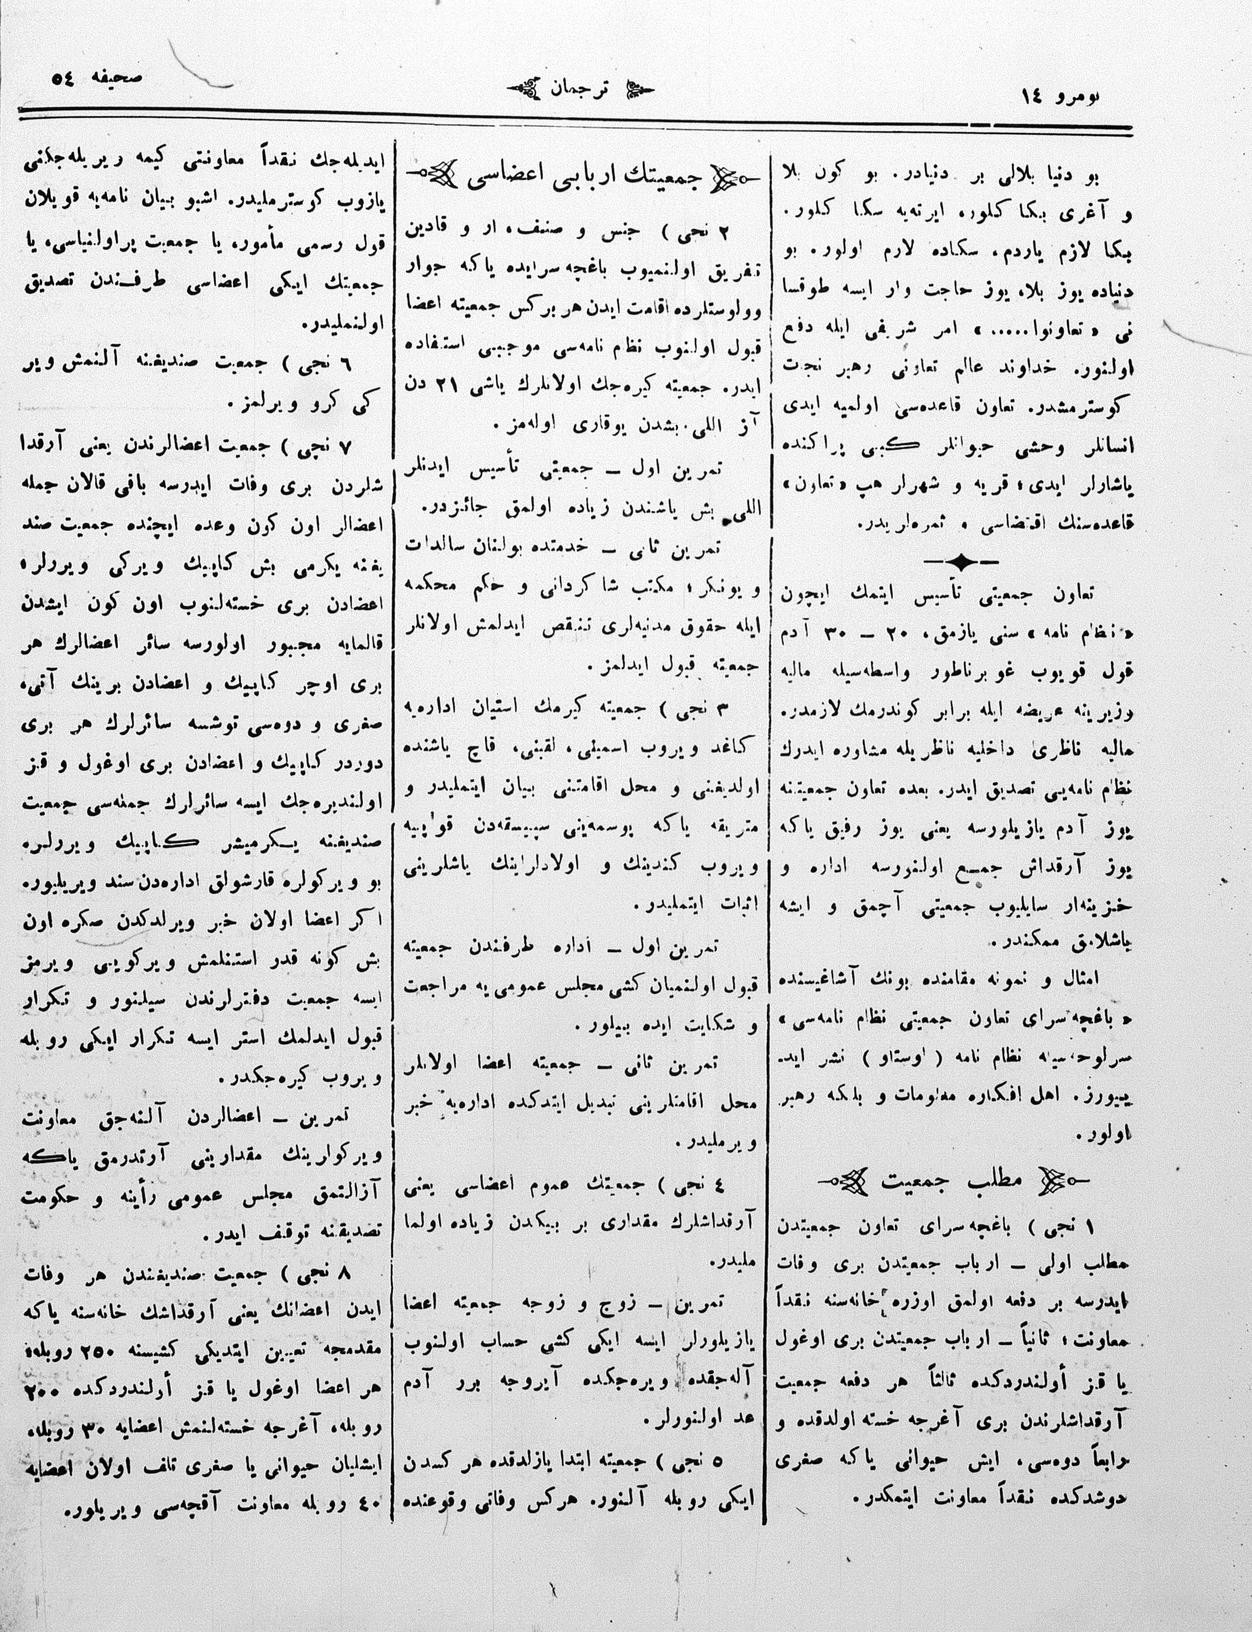 نومرو ١٤
ترجمان
صحيفه ٥٤
بو دنيا بلالى بر دنيادر. بو كون بلا
و آغرى بكا كلور، ايرته‌يه سكا كلور.
بكا لازم ياردم، سكاده لازم اولور. بو
دنياده يوز بلا، يوز حاجت وار ايسه طوقسا
نى «تعاونوا.....» امر شريفى ايله دفع
اولنور. خداوند عالم تعاونى رهبر نجت
كوسترمشدر. تعاون قاعده‌سى اولميه ايدى
انسانلر وحشى حيوانلر كبى پراكنده
ياشارلر ايدى؛ قريه و شهرلر هپ «تعاون»
قاعده‌سنك اقتضاسى و ثمره‌لريدر.
تعاون جمعيتى تأسيس ايتمك ايچون
«نظام نامه» سنى يازمق، ٢٠ – ٣٠ آدم
قول قويوب غوبرناطور واسطه‌سيله ماليه
وزيرينه عريضه ايله برابر كوندرمك لازمدر.
ماليه ناظرى داخليه ناظريله مشاوره ايدرك
نظام نامه‌يى تصديق ايدر. بعده تعاون جمعيتنه
يوز آدم يازيلورسه يعنى يوز رفيق ياكه
يوز آرقداش جمع اولنورسه اداره و
خزينه‌لر سايلیوب جمعيتى آچمق و ايشه
باشلامق ممكندر.
امثال و نمونه مقامنده بونك آشاغيسنده
«باغچه‌سراى تعاون جمعيتى نظام نامه‌سى»
سرلوحه‌سيله نظام نامه (اوستاو) نشر ايد‌
ييورز. اهل افكاره معلومات و بلكه رهبر
اولور.
مطلب جمعيت
١ نجى) باغچه‌سراى تعاون جمعيتدن
مطلب اولى – ارباب جمعيتدن برى وفات
ايدرسه بر دفعه اولمق اوزره خانه‌سنه نقداً
معاونت؛ ثانياً – ارباب جمعيتدن برى اوغول
يا قز أولندردكده ثالثاً هر دفعه جمعيت
آرقداشلرندن برى آغرجه خسته اولدقده و
رابعاً دوه‌سى، ايش حيوانى ياكه صغرى
دوشدكده نقداً معاونت ايتمكدر.
جمعيتك اربابى اعضاسى
٢ نجى) جنس و صنف، ار و قادين
تفريق اولنميوب باغچه‌سرايده ياكه جوار
وولوستلرده اقامت ايدن هر بركس جمعيته اعضا
قبول اولنوب نظام نامه‌سى موجبى استفاده
ايدر. جمعيته كيره‌جك اولانلرك ياشى ٢١ دن
آز اللى بشدن يوقارى اوله‌مز.
تمرين اول – جمعيتى تأسيس ايدنلر
اللى بش ياشندن زياده اولمق جائزدر.
تمرين ثانى – خدمتده بولنان سالدات
و يونكر؛ مكتب شاكردانى و حكم محكمه
ايله حقوق مدنيه‌لرى تنقص ايدلمش اولانلر
جمعيته قبول ايدلمز.
٣ نجى) جمعيته كيرمك استيان اداره‌يه
كاغد ويروب اسمينى، لقبنى، قاچ ياشنده
اولديغنى و محل اقامتنى بيان ايتمليدر و
متريقه ياكه پوسمه‌ينى سپيسقه‌دن قوپيه
ويروب كندينك و اولادلرينك ياشلرينى
اثبات ايتمليدر.
تمرين اول – اداره طرفندن جمعيته
قبول اولنميان كشى مجلس عمومى‌يه مراجعت
و شكايت ايده بيلور.
تمرين ثانى – جمعيته اعضا اولانلر
محل اقامتلرينى تبديل ايتدكده اداره‌يه خبر
ويرمليدر.
٤ نجى) جمعيتك عموم اعضاسى يعنى
آرقداشلرك مقدارى بر بيكدن زياده اولما
مليدر.
تمرين – زوج و زوجه جمعيته اعضا
يازيلورلر ايسه ايكى كشى حساب اولنوب
آله‌جقده ويره‌جكده آيروجه برر آدم
عد اولنورلر.
٥ نجى) جمعيته ابتدا يازلدقده هر كسدن
ايكى روبله آلنور. هركس وفاتى وقوعنده
ايديله‌جك نقداً معاونتى كيمه ويريله‌جكنى
يازوب كوسترمليدر. اشبو بيان نامه‌يه قويلان
قول رسمى مأمور، يا جمعيت پراولنياسى، يا
جمعيتك ايكى اعضاسى طرفندن تصديق
اولنمليدر.
٦ نجى) جمعيت صنديغنه آلنمش وير
كى كرو ويرلمز.
٧ نچى) جمعيت اعضالرندن يعنى آرقدا
شلردن برى وفات ايدرسه باقى قالان جمله
اعضالر اون كون وعده ايچنده جمعيت صند
يغنه يكرمى بش كاپيك ويركى ويررلر،
اعضادن برى خسته‌لنوب اون كون ايشدن
قالمايه مجبور اولورسه سائر اعضالرك هر
برى اوچر كاپيك و اعضادن برينك آتى،
صغرى و دوه‌سى توشسه سائرلرك هر برى
دوردر كاپيك و اعضادن برى اوغول و قز
اولنديره‌جك ايسه سائرلرك جمله‌سى جمعيت
صنديغنه يكرميشر كاپيك ويررلر.
بو ويركولره قارشولق اداره‌دن سند ويريليور.
اكر اعضا اولان خبر ويرلدكدن صكره اون
بش كونه قدر استنلمش ويركويى ويرمز
ايسه جمعيت دفترلرندن سيلنور و تكرار
قبول ايدلمك استر ايسه تكرار ايكى روبله
ويروب كيره‌جكدر.
تمرين – اعضالردن آلنه‌جق معاونت
ويركولرينك مقدارينى آرتدرمق ياكه
آزالتمق مجلس عمومى رأينه و حكومت
تصديقنه توقف ايدر.
٨ نجى) جمعيت صنديغندن هر وفات
ايدن اعضانك يعنى آرقداشك خانه‌سنه ياكه
مقدمجه تعيين ايتديكى كشيسنه ٢٥٠ روبله،
هر اعضا اوغول يا قز أولندردكده ٢٠٠
روبله، آغرجه خسته‌لنمش اعضايه ٣٠ روبله،
ايشليان حيوانى يا صغرى تلف اولان اعضايه
٤٠ روبله معاونت آقچه‌سى ويريلور.